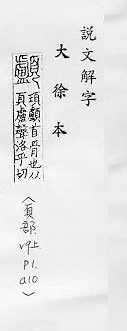 說文解字
大徐本
顱
𩑒顱首骨也从
頁盧聲洛乎切
〈頁部.
v9上.
P1.
a10〉